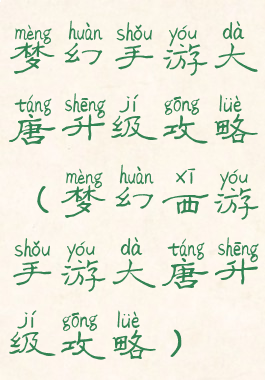 mèng huàn shǒu yóu dà
梦幻手游大
táng shēng jí gōng lüè
唐升级攻略
mèng huàn xī yóu
(梦幻西游
shǒu yóu dà táng shēng
手游大唐升
jí gōng lüè
级攻略)